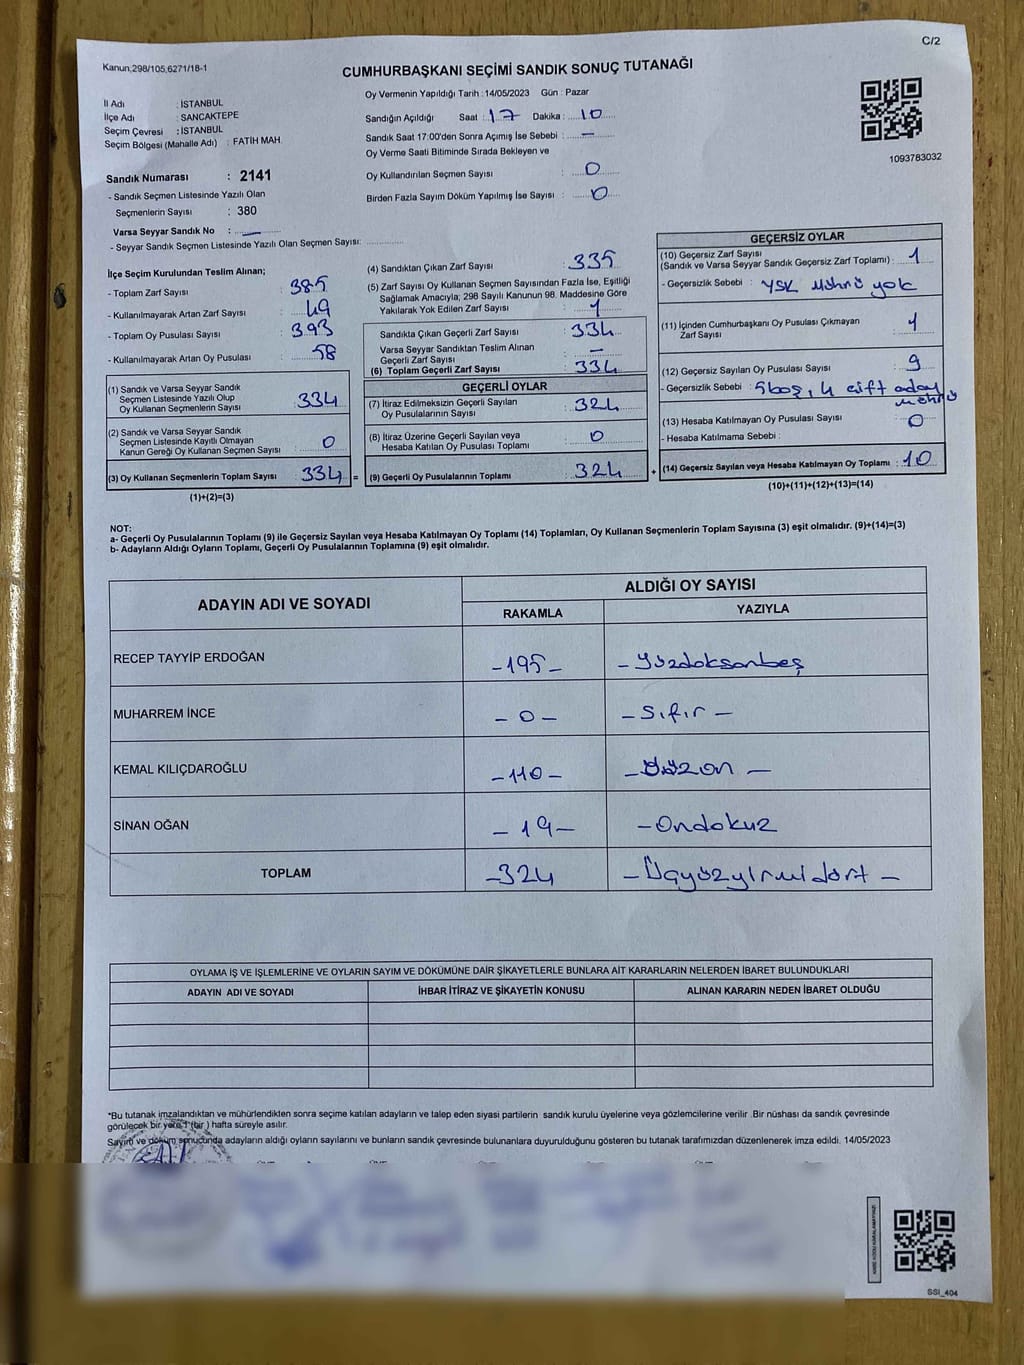 C/2
Kanun;298/105,6271/18-1
CUMHURBAŞKANI SEÇİMİ SANDIK SONUÇ TUTANAĞI
Oy Vermenin Yapıldığı Tarih : 14/05/2023 Gün : Pazar
İl Adı : İSTANBUL
İlçe Adı : SANCAKTEPE
Seçim Çevresi : İSTANBUL
Seçim Bölgesi (Mahalle Adı) : FATİH MAH.
Sandık Numarası : 2141
- Sandık Seçmen Listesinde Yazılı Olan
Seçmenlerin Sayısı : 380
Varsa Seyyar Sandık No : —
- Seyyar Sandık Seçmen Listesinde Yazılı Olan Seçmen Sayısı:
Sandığın Açıldığı Saat : 17 Dakika : 10
Sandık Saat 17:00'den Sonra Açımış İse Sebebi : —
Oy Verme Saati Bitiminde Sırada Bekleyen ve
Oy Kullandırılan Seçmen Sayısı : 0
Birden Fazla Sayım Döküm Yapılmış İse Sayısı : 0
1093783032
İlçe Seçim Kurulundan Teslim Alınan;
- Toplam Zarf Sayısı : 385
- Kullanılmayarak Artan Zarf Sayısı : 49
- Toplam Oy Pusulası Sayısı : 393
- Kullanılmayarak Artan Oy Pusulası : 58
(1) Sandık ve Varsa Seyyar Sandık
Seçmen Listesinde Yazılı Olup
Oy Kullanan Seçmenlerin Sayısı : 334
(2) Sandık ve Varsa Seyyar Sandık
Seçmen Listesinde Kayıtlı Olmayan
Kanun Gereği Oy Kullanan Seçmen Sayısı : 0
(3) Oy Kullanan Seçmenlerin Toplam Sayısı : 334 =
(1)+(2)=(3)
(4) Sandıktan Çıkan Zarf Sayısı : 335
(5) Zarf Sayısı Oy Kullanan Seçmen Sayısından Fazla İse, Eşitliği
Sağlamak Amacıyla; 298 Sayılı Kanunun 98. Maddesine Göre
Yakılarak Yok Edilen Zarf Sayısı : 1
Sandıkta Çıkan Geçerli Zarf Sayısı : 334
Varsa Seyyar Sandıktan Teslim Alınan
Geçerli Zarf Sayısı : —
(6) Toplam Geçerli Zarf Sayısı : 334
GEÇERLİ OYLAR
(7) İtiraz Edilmeksizin Geçerli Sayılan
Oy Pusulalarının Sayısı : 324
(8) İtiraz Üzerine Geçerli Sayılan veya
Hesaba Katılan Oy Pusulası Toplamı : 0
(9) Geçerli Oy Pusulalarının Toplamı : 324 +
GEÇERSİZ OYLAR
(10) Geçersiz Zarf Sayısı
(Sandık ve Varsa Seyyar Sandık Geçersiz Zarf Toplamı) : 1
- Geçersizlik Sebebi : YSK Mührü yok
(11) İçinden Cumhurbaşkanı Oy Pusulası Çıkmayan
Zarf Sayısı : 1
(12) Geçersiz Sayılan Oy Pusulası Sayısı : 9
- Geçersizlik Sebebi : 5boş, 4 çift aday
mührü
(13) Hesaba Katılmayan Oy Pusulası Sayısı : 0
- Hesaba Katılmama Sebebi :
(14) Geçersiz Sayılan veya Hesaba Katılmayan Oy Toplamı : 10
(10)+(11)+(12)+(13)=(14)
NOT:
a- Geçerli Oy Pusulalarının Toplamı (9) ile Geçersiz Sayılan veya Hesaba Katılmayan Oy Toplamı (14) Toplamları, Oy Kullanan Seçmenlerin Toplam Sayısına (3) eşit olmalıdır. (9)+(14)=(3)
b- Adayların Aldığı Oyların Toplamı, Geçerli Oy Pusulalarının Toplamına (9) eşit olmalıdır.
ADAYIN ADI VE SOYADI
ALDIĞI OY SAYISI
RAKAMLA YAZIYLA
RECEP TAYYİP ERDOĞAN -195- -Yüzdoksanbeş
MUHARREM İNCE -0- -Sıfır-
KEMAL KILIÇDAROĞLU -110- -Yüzon-
SİNAN OĞAN -19- -Ondokuz
TOPLAM -324 -Üçyüzyirmidört-
OYLAMA İŞ VE İŞLEMLERİNE VE OYLARIN SAYIM VE DÖKÜMÜNE DAİR ŞİKAYETLERLE BUNLARA AİT KARARLARIN NELERDEN İBARET BULUNDUKLARI
ADAYIN ADI VE SOYADI İHBAR İTİRAZ VE ŞİKAYETİN KONUSU ALINAN KARARIN NEDEN İBARET OLDUĞU
*Bu tutanak imzalandıktan ve mühürlendikten sonra seçime katılan adayların ve talep eden siyasi partilerin sandık kurulu üyelerine veya gözlemcilerine verilir .Bir nüshası da sandık çevresinde
görülecek bir yere 1 (bir ) hafta süreyle asılır.
Sayım ve döküm sonucunda adayların aldığı oyların sayılarını ve bunların sandık çevresinde bulunanlara duyurulduğunu gösteren bu tutanak tarafımızdan düzenlenerek imza edildi. 14/05/2023
KARE KODU KARALAMAYINIZ!
SSİ_404